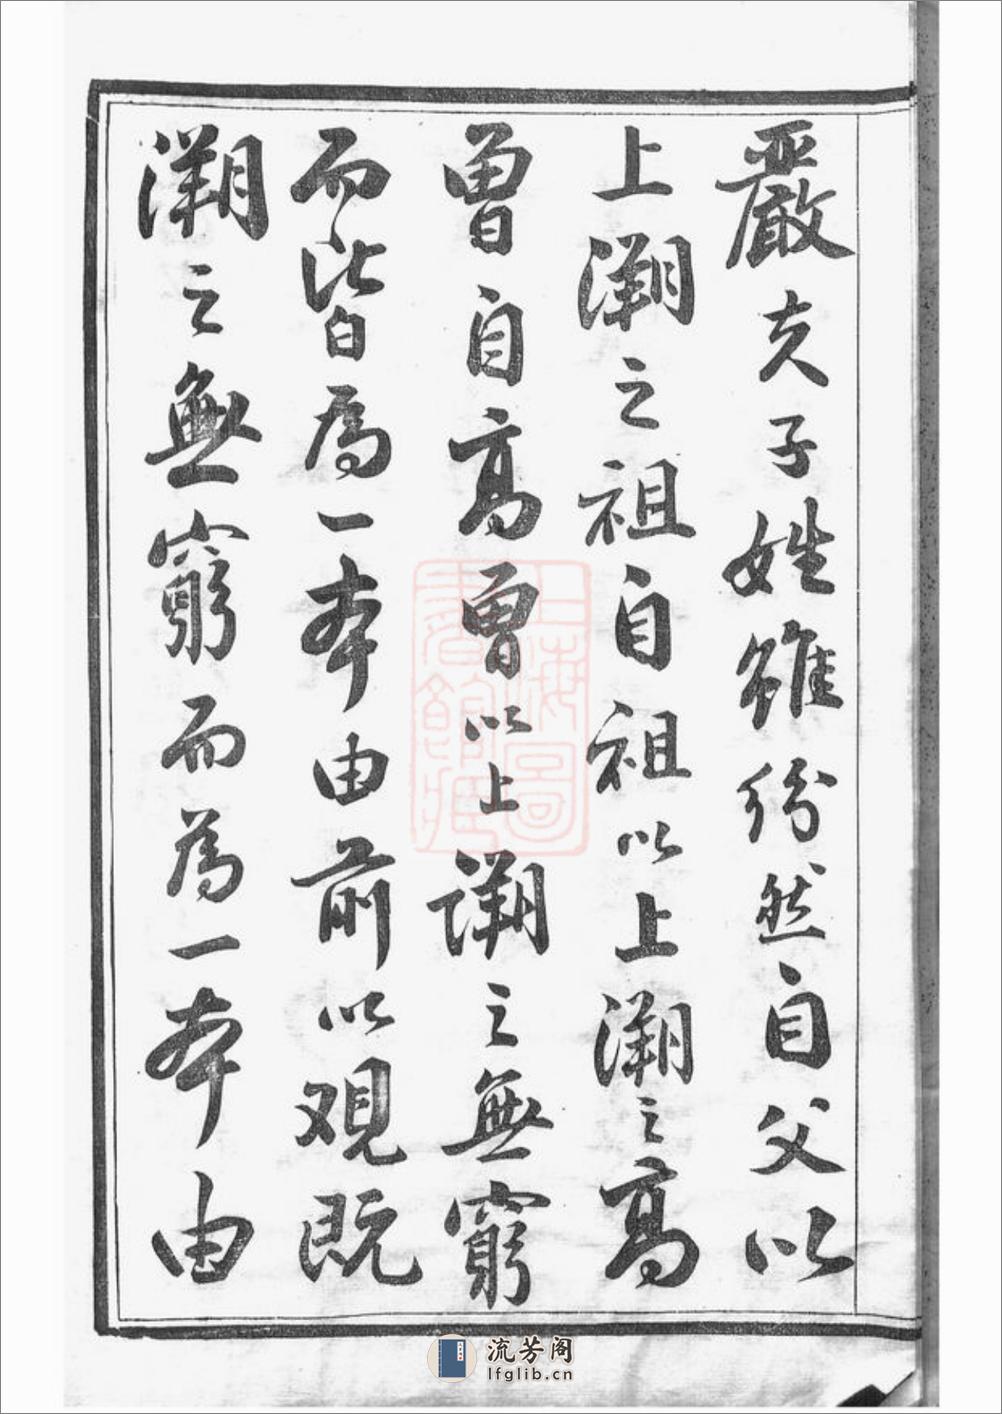 嚴夫子姓雖紛然自父以
上溯之祖自祖以上溯之高
曾自高曾以上溯之無窮
而皆為一本由前以觀既
溯之無窮而為一本由
上海圖書館藏
流芳阁
lfglib.cn